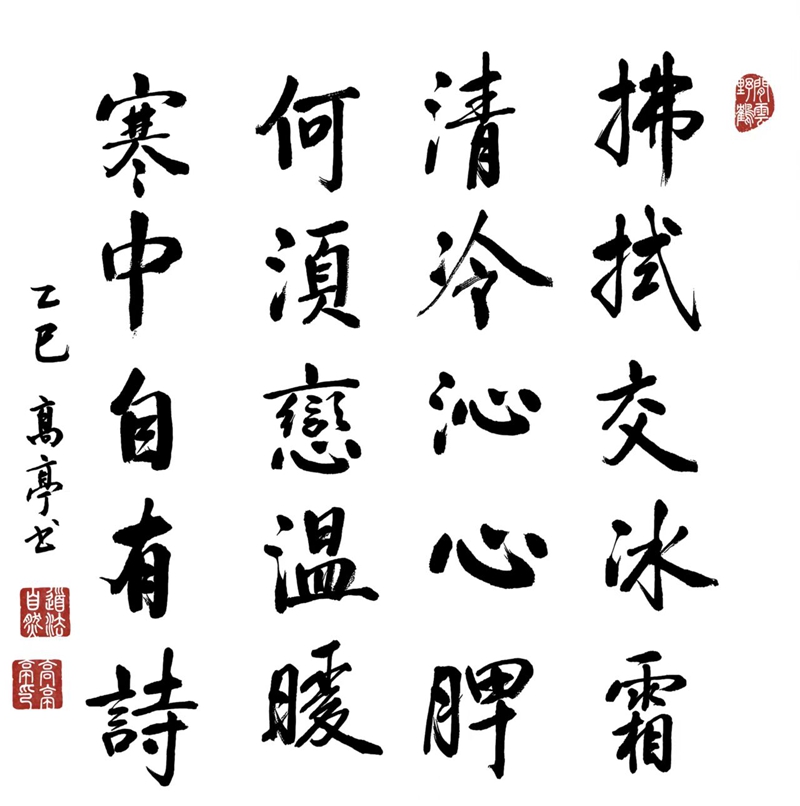 閒雲
野鶴
拂拭交冰霜
清泠沁心脾
何須戀溫暖
寒中自有詩
乙巳 高亭书
道法
自然
高亭
亭印